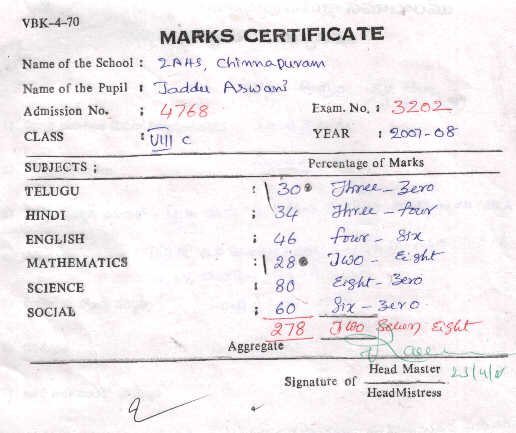 VBK-4-70
MARKS CERTIFICATE
Name of the School : ZAHS, Chinnapuram
Name of the Pupil : Jaddu Aswani
Admission No. : 4768 Exam. No. : 3202
CLASS : VIII C YEAR : 2007-08
SUBJECTS ; Percentage of Marks
TELUGU : 30 Three-Zero
HINDI : 34 Three-four
ENGLISH : 46 four-Six
MATHEMATICS : 28 Two-Eight
SCIENCE : 80 Eight-Zero
SOCIAL : 60 Six-Zero.
278 Two Seven Eight
Aggregate
Head Master
Signature of
HeadMistress